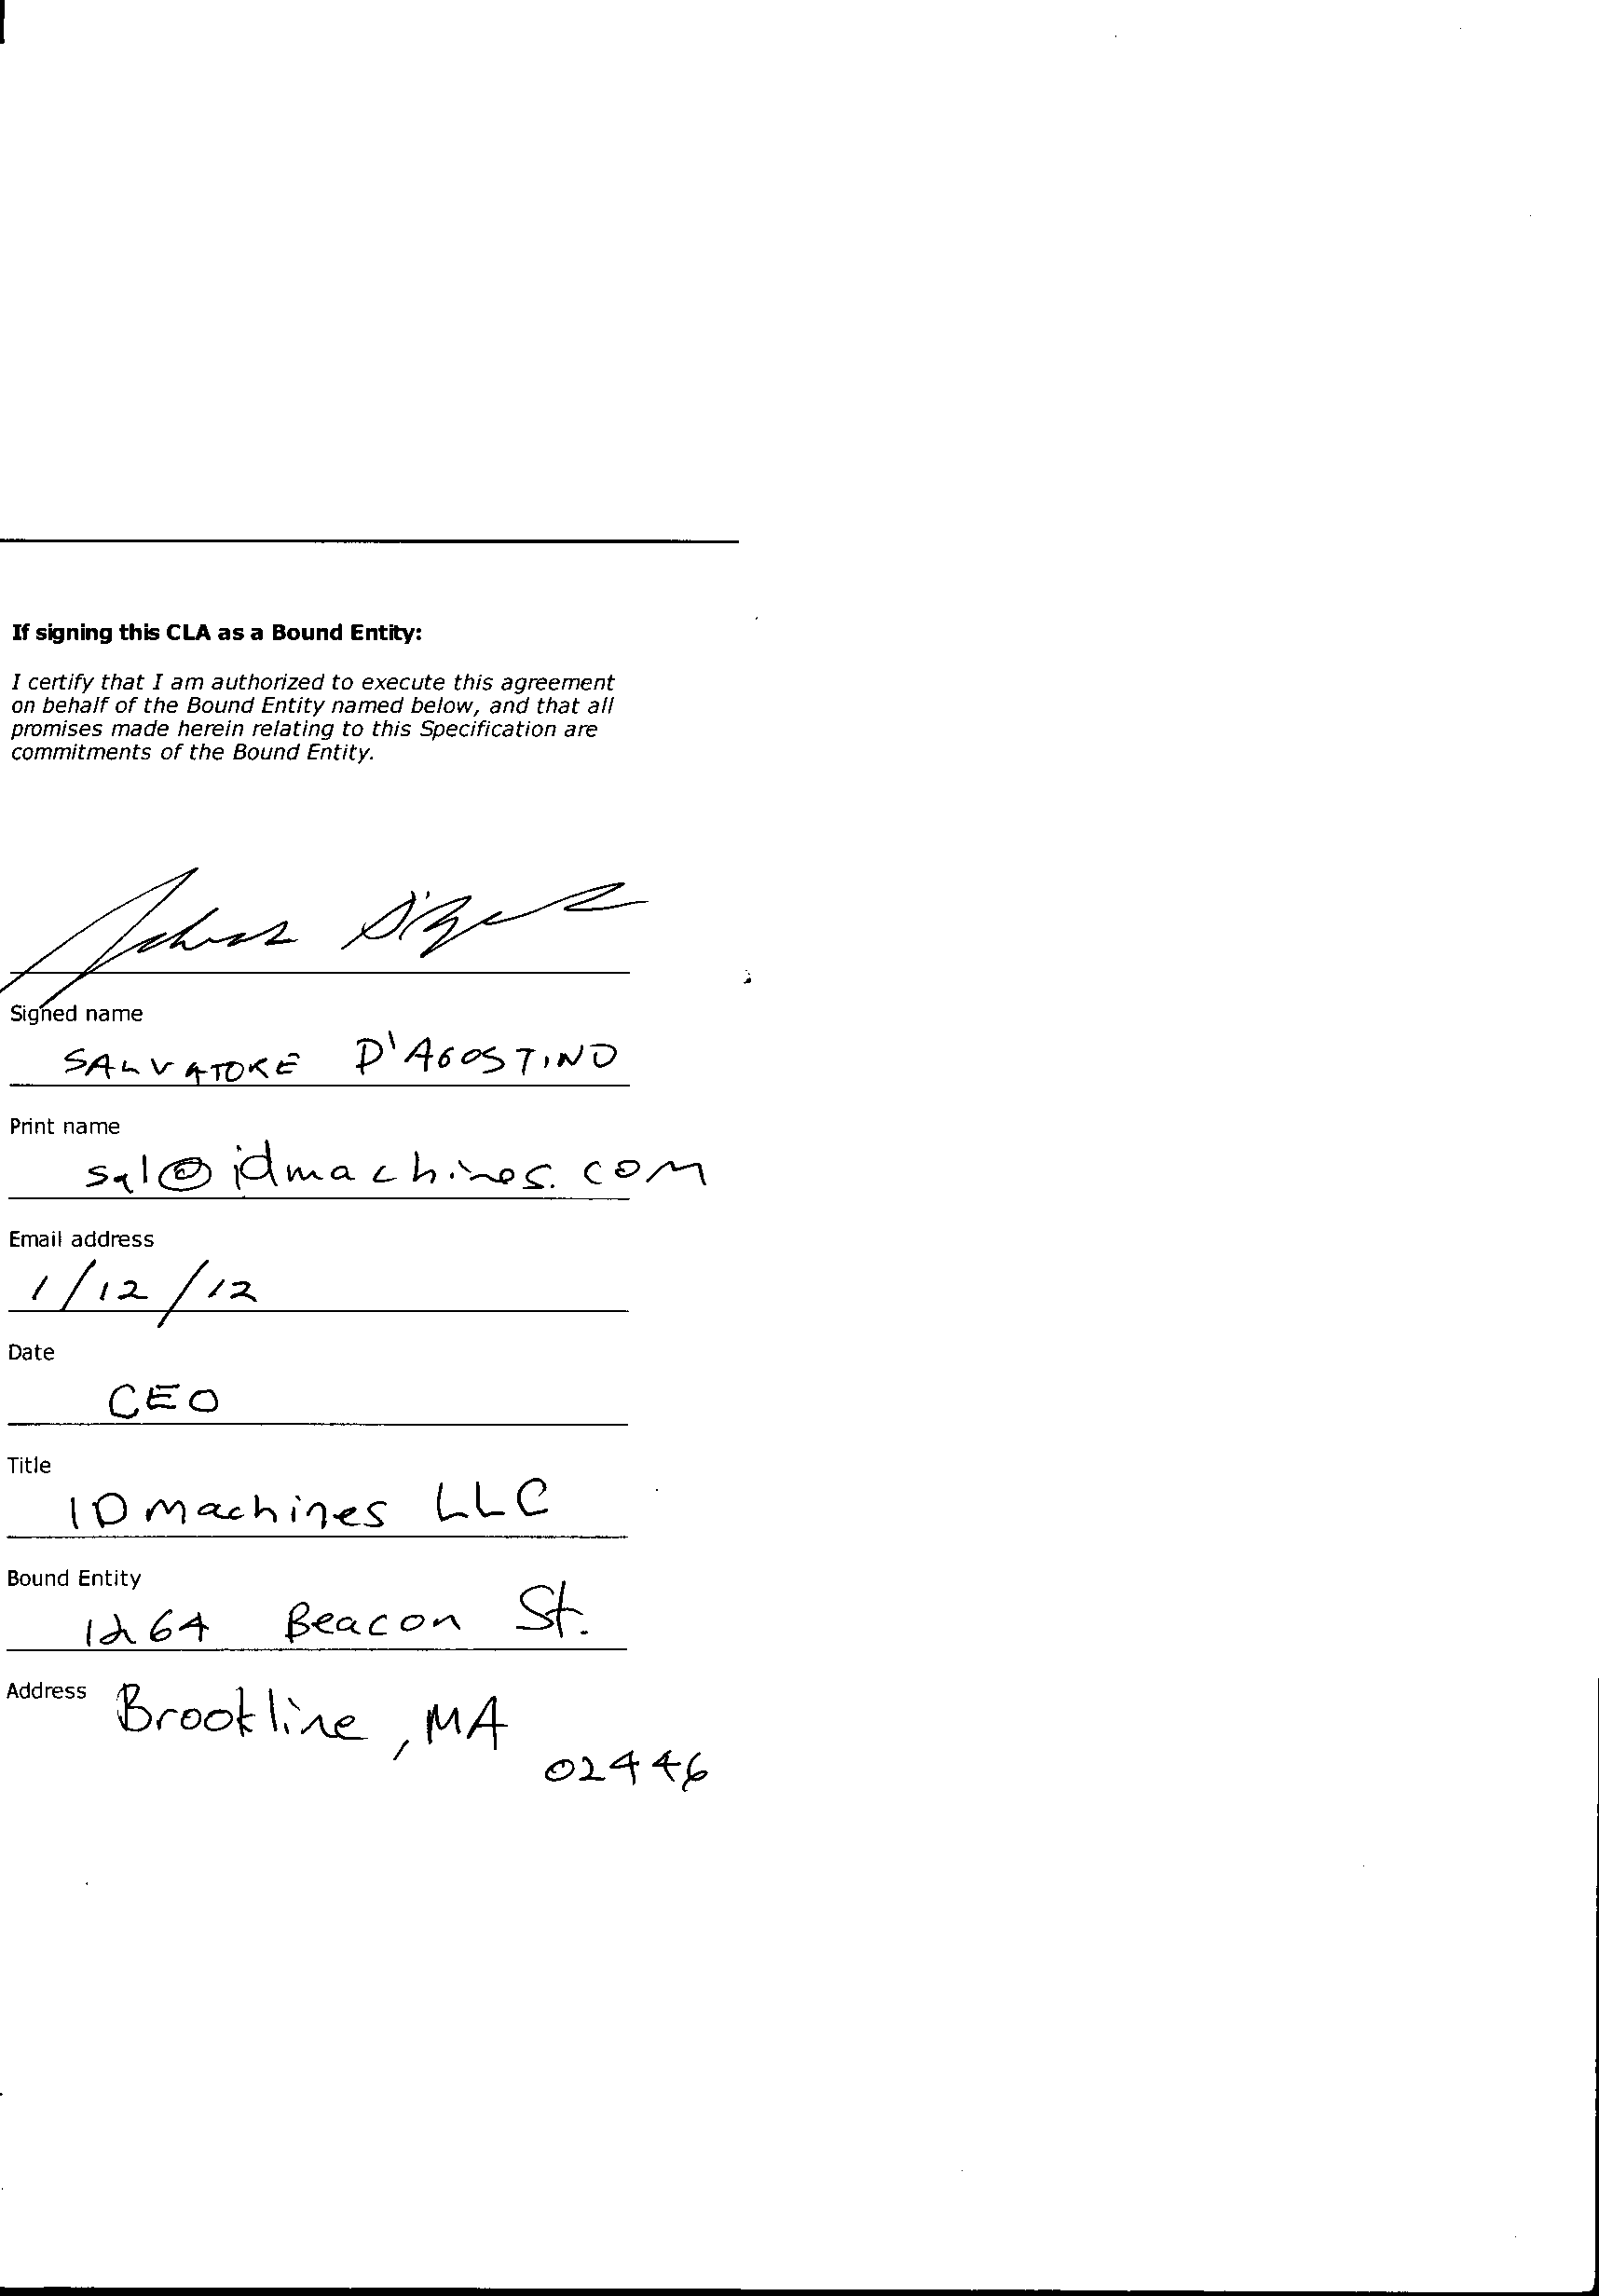 If signing this CLA as a Bound Entity:
I certify that I am authorized to execute this agreement
on behalf of the Bound Entity named below, and that all
promises made herein relating to this Specification are
commitments of the Bound Entity.
Signed name
SALVATORE D'AGOSTINO
Print name
sal@idmachines.com
Email address
1/12/12
Date
CEO
Title
IDmachines LLC
Bound Entity
1264 Beacon St.
Address
Brookline, MA
02446